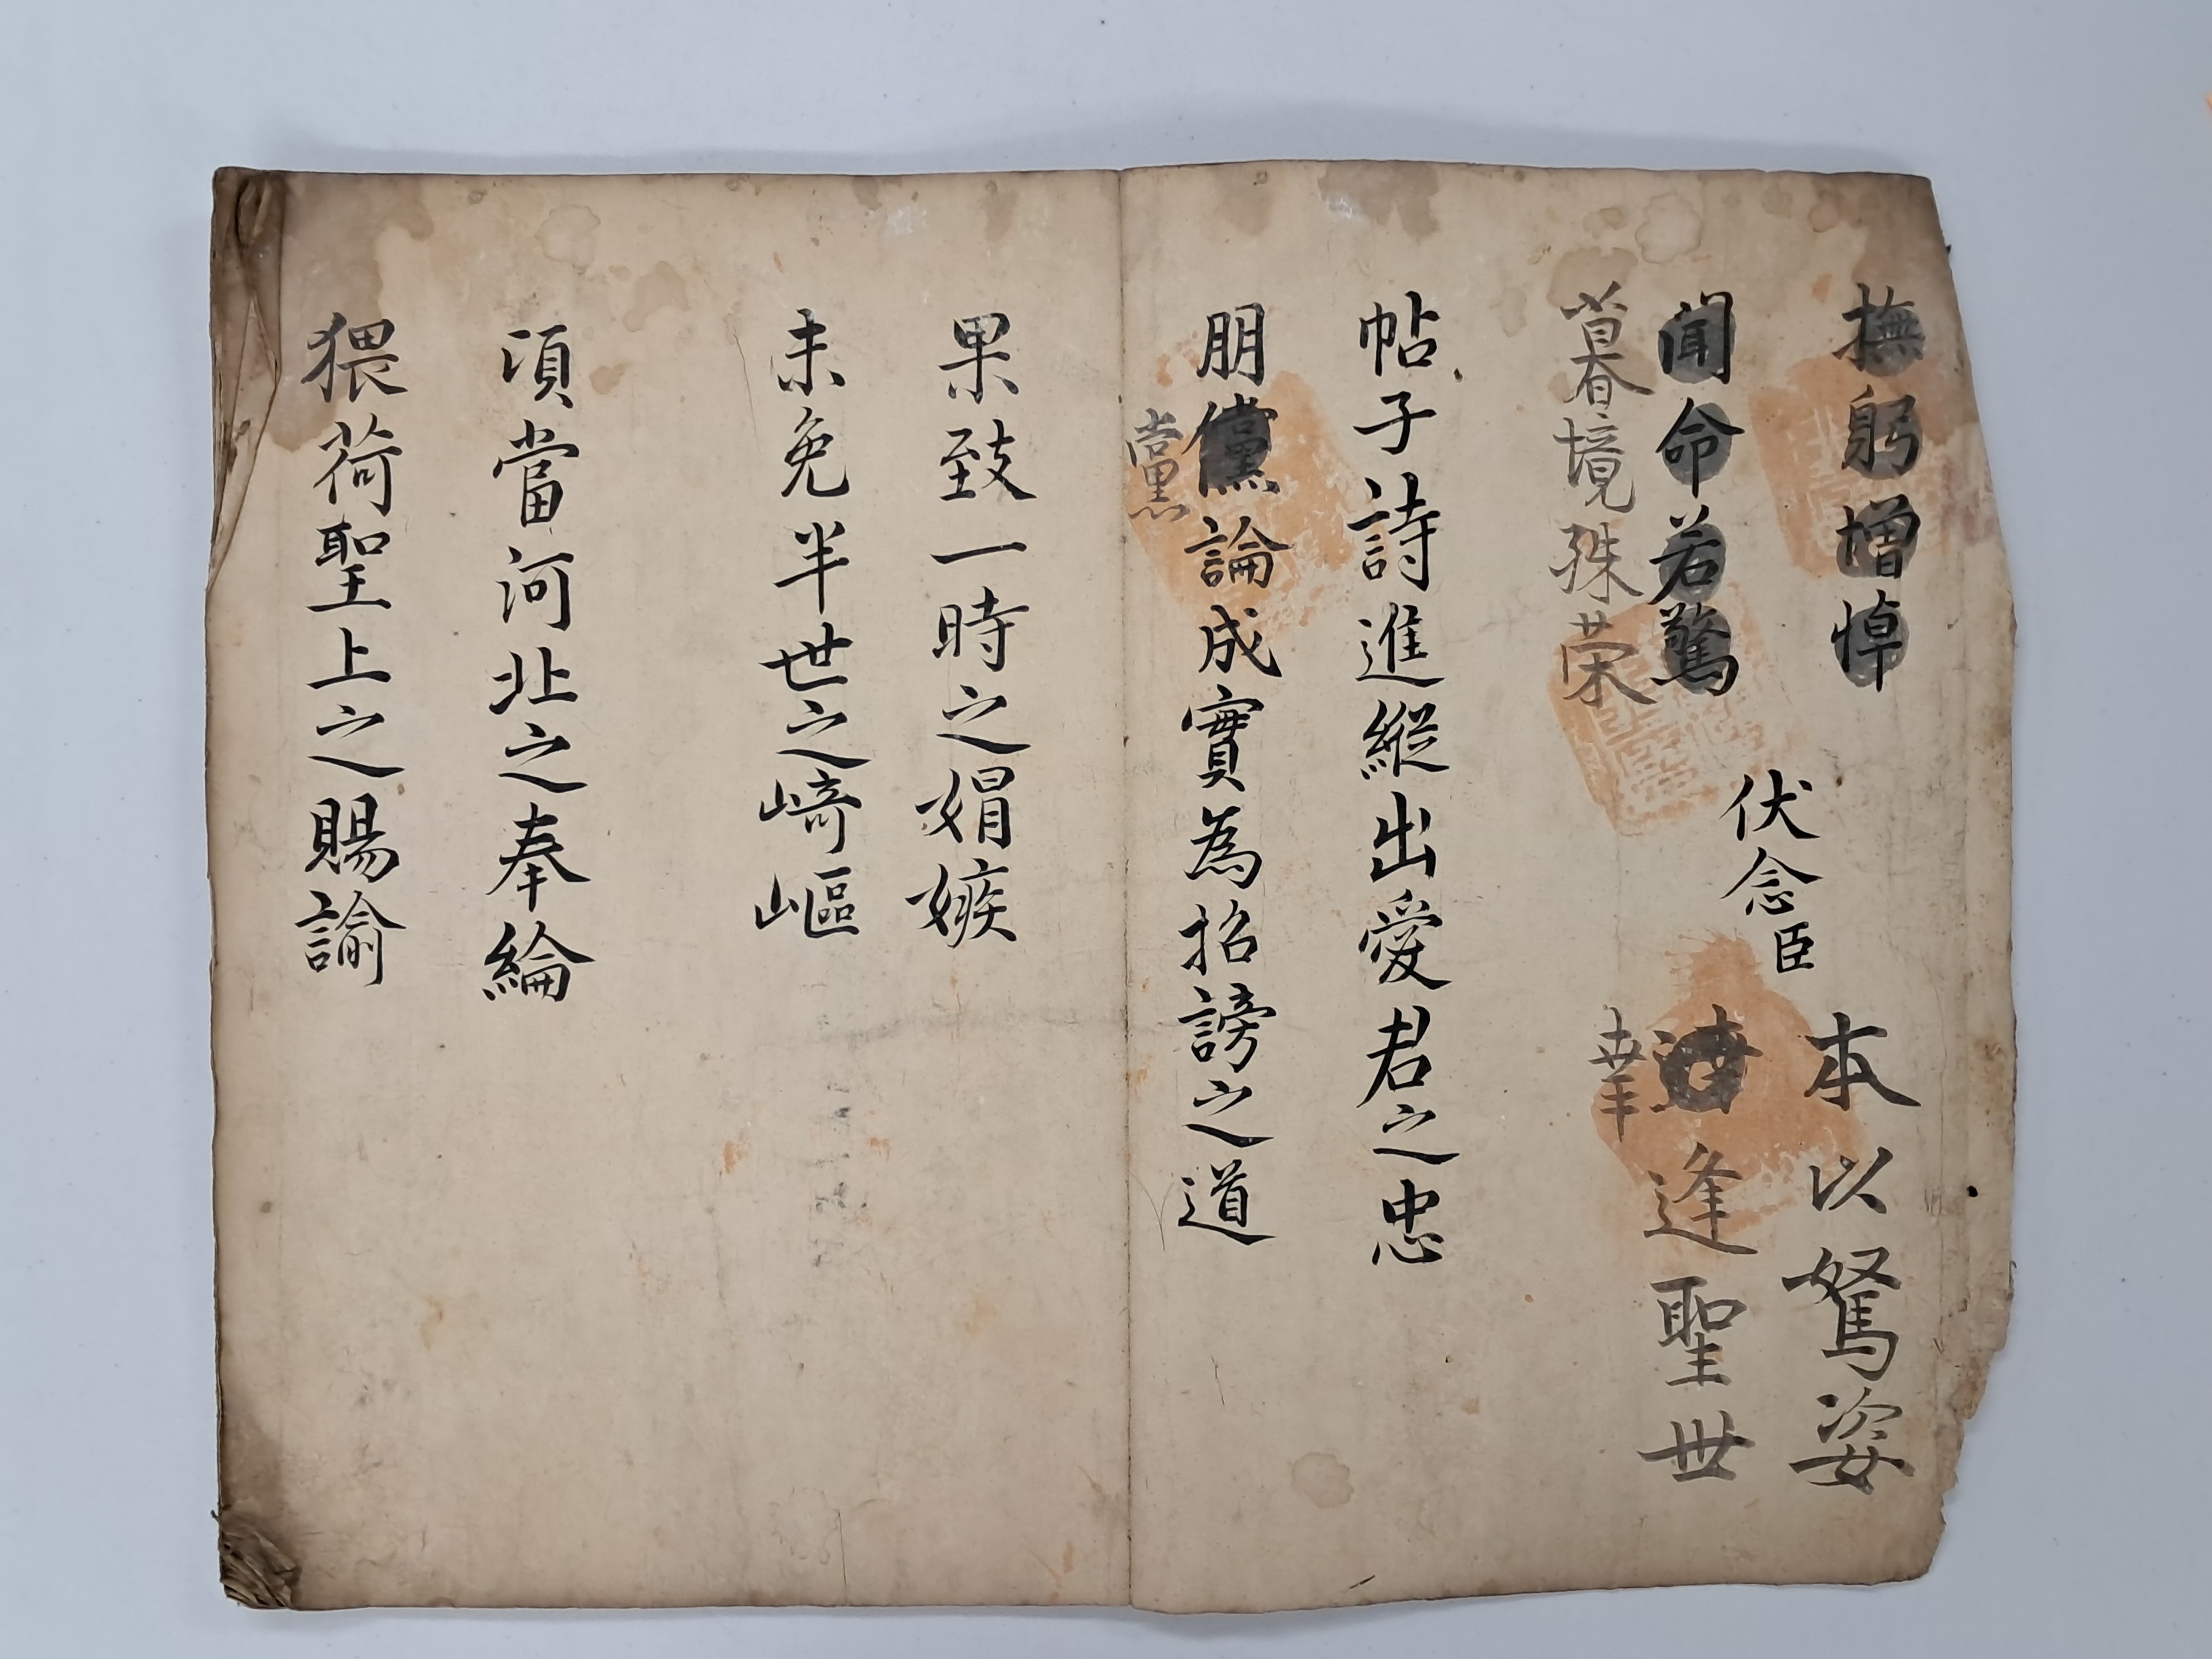 撫躬增悼
聞命若驚
暮春境殊荣
伏念臣
本以駑姿
逢聖世
幸
帖子詩進縱出愛君之忠
朋儻論成實為招謗之道
黨
果致一時之娼嫉
未免半世之崎嶇
湏當河北之奉綸
猥荷聖上之賜諭